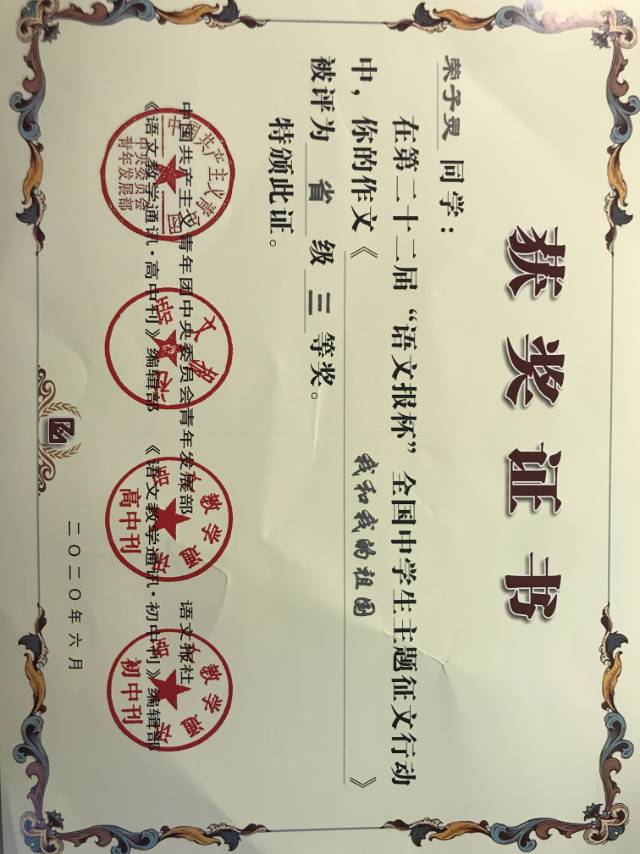 获奖证书
荣子灵 同学：
在第二十二届“语文报杯”全国中学生主题征文行动
中，你的作文《 我和我的祖国 》
被评为 省 级 三 等奖。
特颁此证。
中国共产主义青年团中央委员会青年发展部 语文报社
《语文教学通讯·高中刊》编辑部 《语文教学通讯·初中刊》编辑部
中央委员会
青年发展部
高中刊
初中刊
二〇二〇年六月